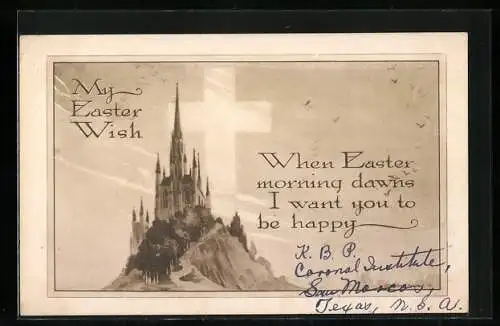 My
Easter
Wish
When Easter
morning dawns
I want you to
be happy
K. B. P.
Coronal Institute,
San Marcos,
Texas, U. S. A.